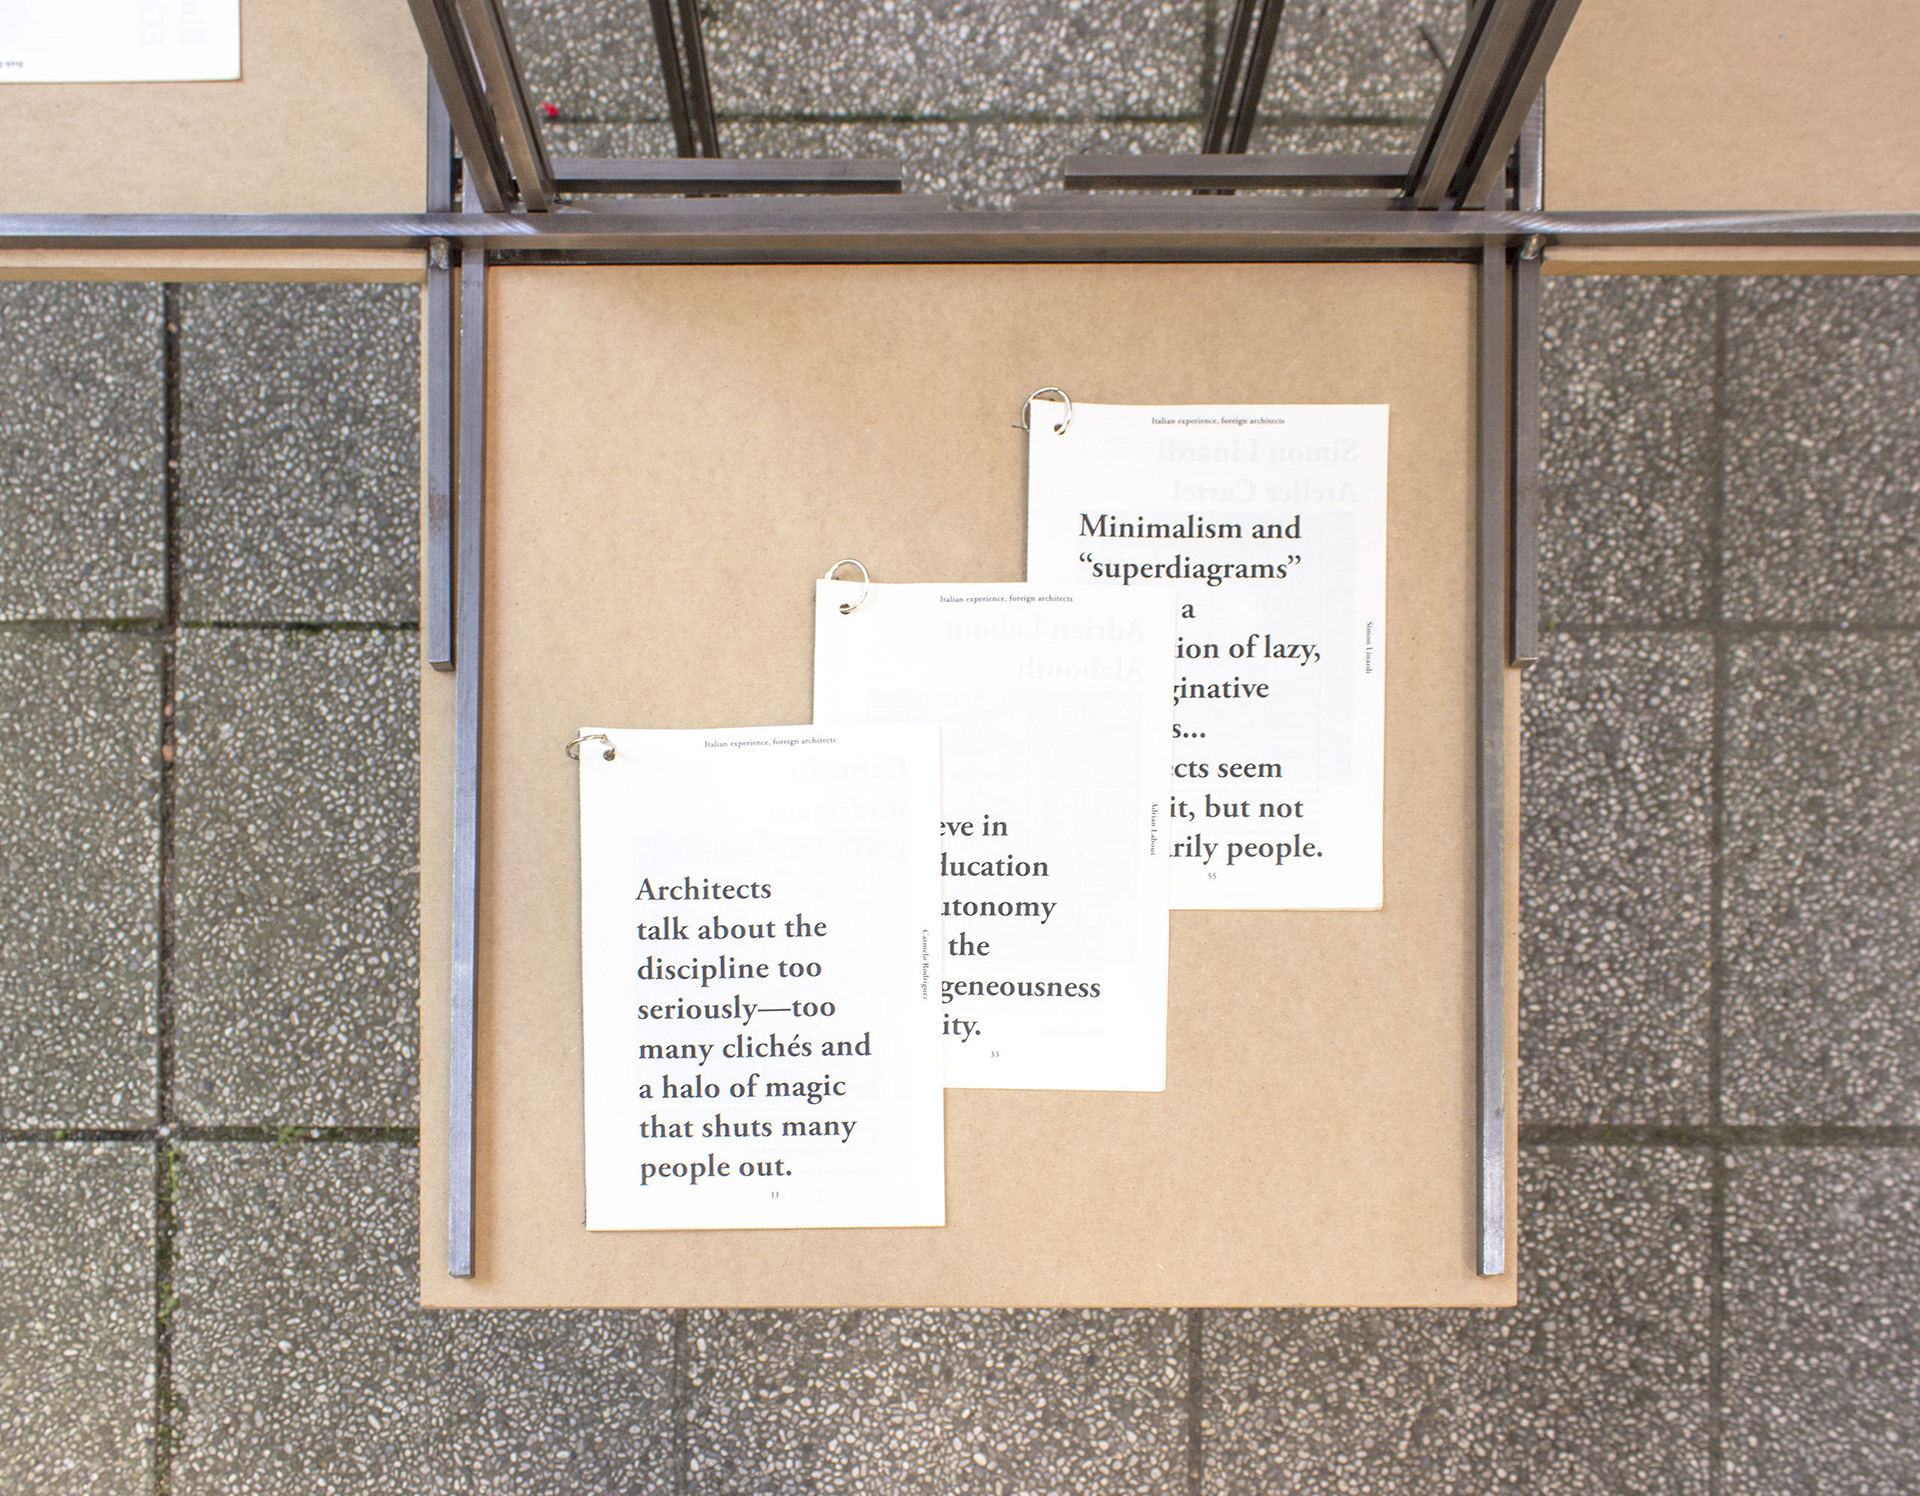 Italian experience, foreign architects
Minimalism and
“superdiagrams”
a
ion of lazy,
ginative
s...
cts seem
it, but not
rily people.
55
Simon Linardi
Simon Linardi
Atelier Cartel
Italian experience, foreign architects
Adrian Labout
Alabouth
eve in
ducation
utonomy
the
geneousness
ity.
33
Adrian Labout
Italian experience, foreign architects
Carmelo
Rodriguez
Architects
talk about the
discipline too
seriously—too
many clichés and
a halo of magic
that shuts many
people out.
11
Carmelo Rodriguez